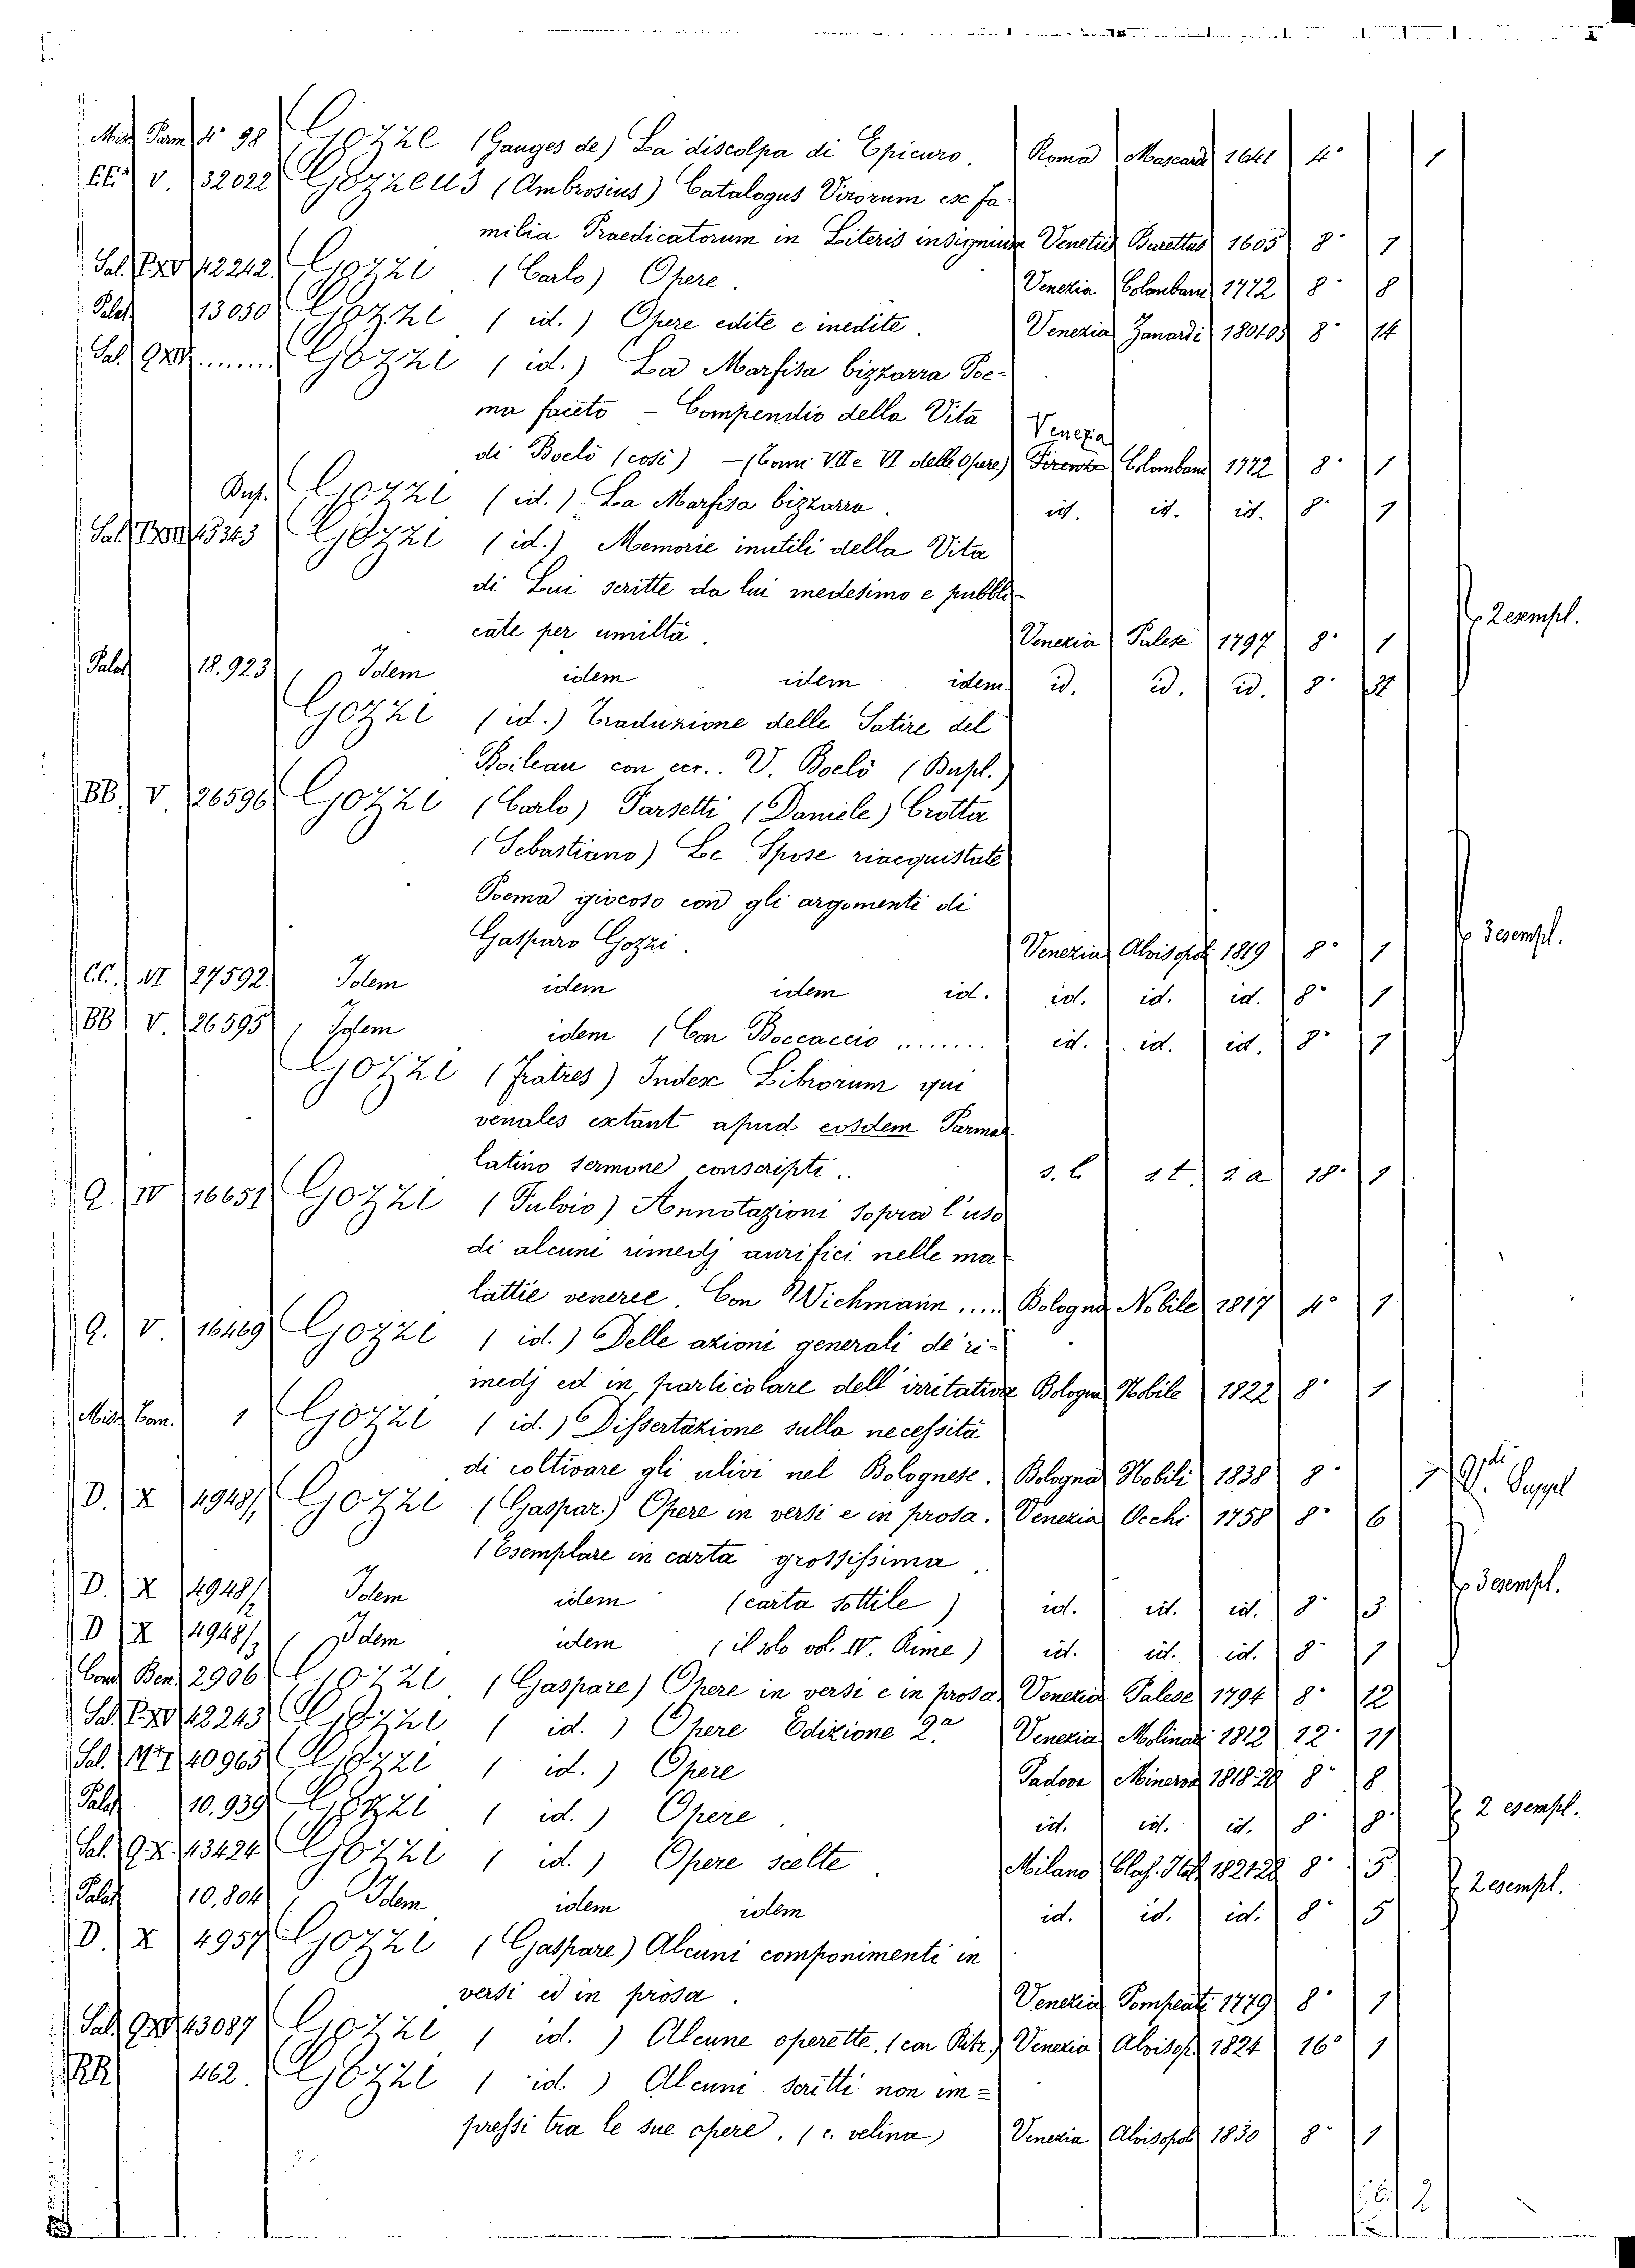 Misc. Parm. 4° 98 Gozze (Gauges de) La discolpa di Epicuro. Roma Mascardi 1641 4° 1
V. 32022 Gozzeus (Ambrosius) Catalogus Virorum ex fa-
milia Praedicatorum in Literis insignium Venetiis Barettus 1605 8° 1
Sal. 42242 Gozzi (Carlo) Opere. Venezia Colomban 1772 8° 8
Palat. 13050 Gozzi (id.) Opere edite e inedite. Venezia Zanardi 8° 14
Sal. Gozzi (id.) La Marfisa bizzarra Poe-
ma faceto – Compendio della Vita Venezia
di Boelò (così) – (Tomi VII e VI delle Opere) Firenze Colomban 1772 8° 1
Dup. Gozzi (id.) La Marfisa bizzarra. id. id. id. 8° 1
Sal. 45343 Gozzi (id.) Memorie inutili della Vita
di Lui scritte da lui medesimo e pubbli-
cate per umiltà. Venezia Palese 1797 8° 1 2 esempl.
Palat. 18.923 Idem idem idem idem id. id. id. 8°
Gozzi (id.) Traduzione delle Satire del
Boileau con ecc.. V. Boelò (Dupl.)
BB. V 26596 Gozzi (Carlo) Farsetti (Daniele) Crotta
(Sebastiano) Le Spose riacquistate
Poema giocoso con gli argomenti di
Gasparo Gozzi. Venezia Alvisopol. 1819 8° 1 3 esempl.
CC. VI 27592. Idem idem idem id. id. id. id. 8° 1
BB V. 26595 Idem idem (Con Boccaccio ....... id. id. id. 8° 1
Gozzi (Fratres) Index Librorum qui
venales extant apud eosdem Parmae
latino sermone conscripti.. s. l. s. t. s. a. 18° 1
Q. IV 16651 Gozzi (Fulvio) Annotazioni sopra l'uso
di alcuni rimedj aurifici nelle ma-
lattie veneree. Con Wichmann .... Bologna Nobile 1817 4° 1
Q. V. 16469 Gozzi (id.) Delle azioni generali de' ri-
medj ed in particolare dell' irritativa Bologna Nobile 1822 8° 1
Misc. Com. 1 Gozzi (id.) Dissertazione sulla necessità
di coltivare gli ulivi nel Bolognese. Bologna Nobili 1838 8° 1
D. X 4948/1 Gozzi (Gaspar.) Opere in versi e in prosa. Venezia Occhi 1758 8° 6
(Esemplare in carta grossissima
D. X 4948/2 Idem idem (carta sottile) id. id. id. 8° 3 3 esempl.
D X 4948/3 Idem idem (il solo vol. IV. Rime) id. id. id. 8° 1
Cond. Ben. 2906 Gozzi (Gaspare) Opere in versi e in prosa. Venezia Palese 1794 8° 12
Sal. 42243 Gozzi (id.) Opere Edizione 2ª Venezia Molinari 1812 12° 11
Sal. 40965 Gozzi (id.) Opere Padova Minerva 1818-20 8° 8
Palat. 10.939 Gozzi (id.) Opere. id. id. id. 8° 8. 2 esempl.
Sal. 43424 Gozzi (id.) Opere scelte. Milano Class. Ital. 1821-22 8° 5
Palat. 10,804 Idem idem idem id. id. id. 8° 5 2 esempl.
D. X 4957 Gozzi (Gaspare) Alcuni componimenti in
versi ed in prosa. Venezia Pompeati 1779 8° 1
Sal. 43087 Gozzi (id.) Alcune operette. (con Ritr.) Venezia Alvisop. 1824 16° 1
462. Gozzi (id.) Alcuni scritti non im=
pressi tra le sue opere. (c. velina) Venezia Alvisopol. 1830 8° 1